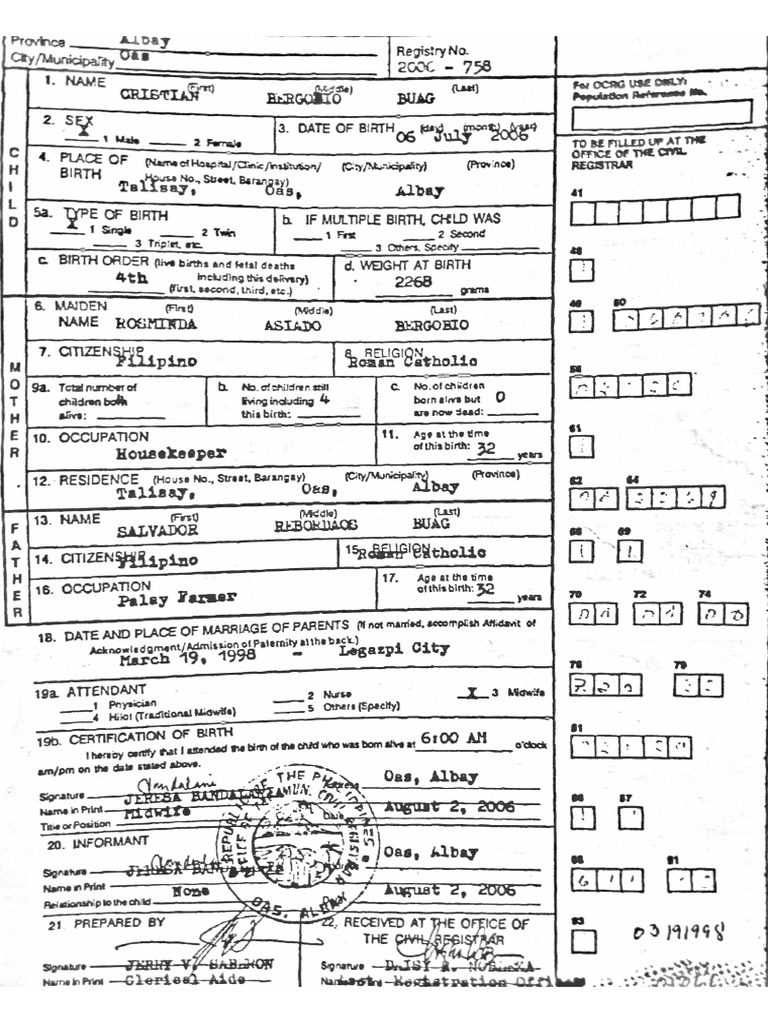 Province Albay
City/Municipality Oas
Registry No.
2006 - 758
CHILD
1. NAME (First) (Middle) (Last)
CRISTIAN BERGOBIO BUAG
2. SEX
X 1 Male 2 Female
3. DATE OF BIRTH (day) (month) (year)
06 July 2006
4. PLACE OF BIRTH (Name of Hospital/Clinic/Institution/ (City/Municipality) (Province)
House No., Street, Barangay)
Talisay, Oas, Albay
5a. TYPE OF BIRTH
X 1 Single 2 Twin
3 Triplet, etc.
b. IF MULTIPLE BIRTH, CHILD WAS
1 First 2 Second
3 Others, Specify
c. BIRTH ORDER (live births and fetal deaths
4th including this delivery)
(first, second, third, etc.)
d. WEIGHT AT BIRTH
2268
grams
MOTHER
6. MAIDEN (First) (Middle) (Last)
NAME ROSMINDA ASIADO BERGOBIO
7. CITIZENSHIP
Filipino
8. RELIGION
Roman Catholic
9a. Total number of
children born
alive: 4
b. No. of children still
living including 4
this birth:
c. No. of children
born alive but 0
are now dead:
10. OCCUPATION
Housekeeper
11. Age at the time
of this birth: 32
years
12. RESIDENCE (House No., Street, Barangay) (City/Municipality) (Province)
Talisay, Oas, Albay
FATHER
13. NAME (First) (Middle) (Last)
SALVADOR REBORDAOS BUAG
14. CITIZENSHIP
Filipino
15. RELIGION
Roman Catholic
16. OCCUPATION
Palay Farmer
17. Age at the time
of this birth: 32
years
18. DATE AND PLACE OF MARRIAGE OF PARENTS (If not married, accomplish Affidavit of
Acknowledgment/Admission of Paternity at the back.)
March 19, 1998 - Legazpi City
19a. ATTENDANT
1 Physician 2 Nurse X 3 Midwife
4 Hilot (Traditional Midwife) 5 Others (Specify)
19b. CERTIFICATION OF BIRTH
I hereby certify that I attended the birth of the child who was born alive at 6:00 AM o'clock
am/pm on the date stated above.
Signature Oas, Albay
Name in Print JERESA August 2, 2006
Title or Position Midwife
20. INFORMANT
Signature Oas, Albay
Name in Print JERESA
Relationship to the child None August 2, 2006
REPUBLIC OF THE PHILIPPINES
OAS, ALBAY
21. PREPARED BY
Signature
Name in Print JERRY V.
Clerical Aide
22. RECEIVED AT THE OFFICE OF
THE CIVIL REGISTRAR
Signature
Registration
For OCRG USE ONLY:
Population Reference No.
TO BE FILLED UP AT THE
OFFICE OF THE CIVIL
REGISTRAR
41
48
49 50
56
61
62 64
68 69
70 72 74
76 79
81
86 87
88 91
93
03191998